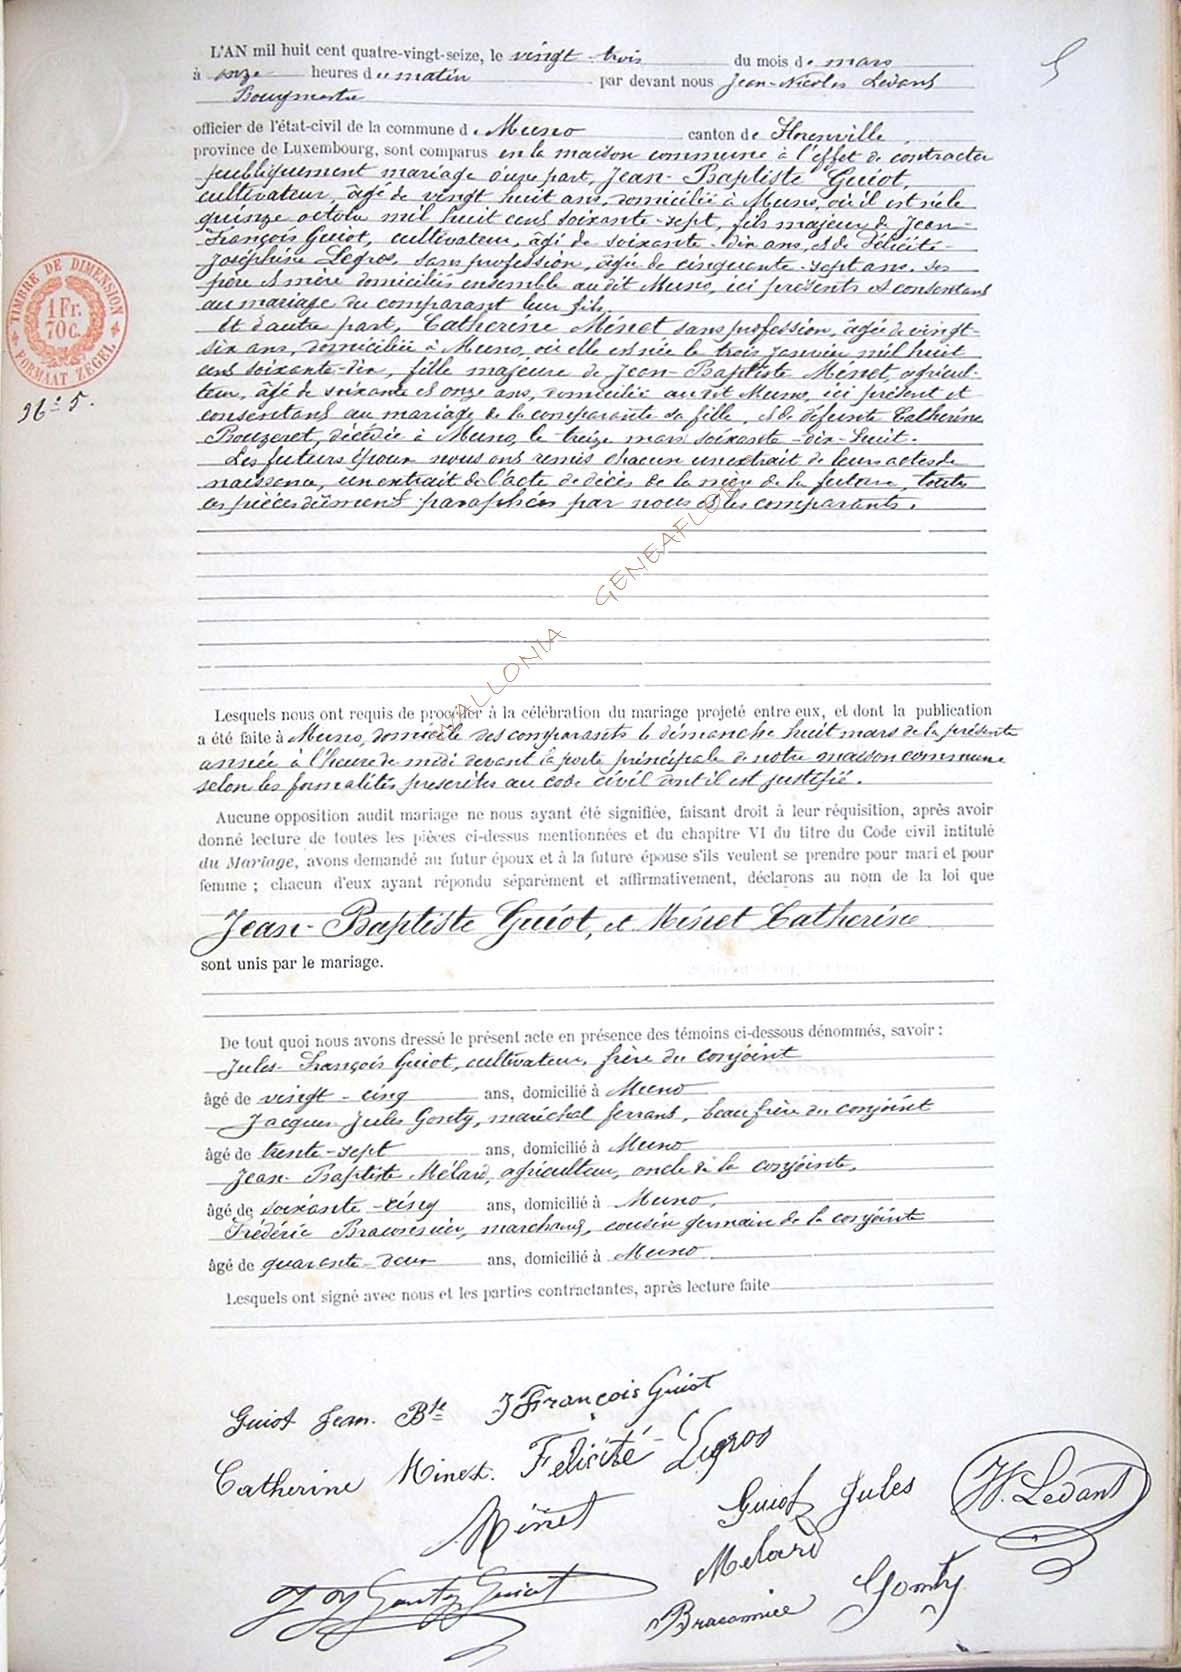 5
L'AN mil huit cent quatre-vingt-seize, le vingt-trois du mois de mars
à onze heures du matin par devant nous Jean-Nicolas Ledant
Bourgmestre
officier de l'état-civil de la commune de Muno canton de Florenville,
province de Luxembourg, sont comparus en la maison commune à l'effet de contracter
publiquement mariage d'une part, Jean-Baptiste Guiot,
cultivateur, âgé de vingt huit ans, domicilié à Muno, où il est né le
quinze octobre mil huit cent soixante-sept, fils majeur de Jean-
François Guiot, cultivateur, âgé de soixante-dix ans, et de Félicité-
Joséphine Legros, sans profession, âgée de cinquante-sept ans, ses
père et mère domiciliés ensemble au dit Muno, ici présents et consentant
au mariage du comparant leur fils.
Et d'autre part, Catherine Minet sans profession, âgée de vingt-
six ans, domiciliée à Muno, où elle est née le trois janvier mil huit
cent soixante-dix, fille majeure de Jean-Baptiste Minet, agricul-
teur, âgé de soixante et onze ans, domicilié au dit Muno, ici présent et
consentant au mariage de la comparante sa fille, et de défunte Catherine
Bouzeret, décédée à Muno, le treize mars soixante-dix-huit.
Les futurs époux nous ont remis chacun un extrait de leurs actes de
naissance, un extrait de l'acte de décès de la mère de la future, toutes
ces pièces dûment paraphées par nous et les comparants.
TIMBRE DE DIMENSION
1 Fr.
70 c.
FORMAAT ZEGEL
96: 5.
WALLONIA GENEAFLORE
Lesquels nous ont requis de procéder à la célébration du mariage projeté entre eux, et dont la publication
a été faite à Muno, domicile des comparants le dimanche huit mars de la présente
année à l'heure de midi devant la porte principale de notre maison commune
selon les formalités prescrites au code civil dont il est justifié.
Aucune opposition audit mariage ne nous ayant été signifiée, faisant droit à leur réquisition, après avoir
donné lecture de toutes les pièces ci-dessus mentionnées et du chapitre VI du titre du Code civil intitulé
du Mariage, avons demandé au futur époux et à la future épouse s'ils veulent se prendre pour mari et pour
femme ; chacun d'eux ayant répondu séparément et affirmativement, déclarons au nom de la loi que
Jean-Baptiste Guiot, et Minet Catherine
sont unis par le mariage.
De tout quoi nous avons dressé le présent acte en présence des témoins ci-dessous dénommés, savoir :
Jules-François Guiot, cultivateur, frère du conjoint
âgé de vingt-cinq ans, domicilié à Muno
Jacques-Jules Gonty, maréchal ferrant, beau frère du conjoint
âgé de trente-sept ans, domicilié à Muno
Jean-Baptiste Mélard, agriculteur, oncle de la conjointe,
âgé de soixante-cinq ans, domicilié à Muno,
Frédéric Braconnier, marchand, cousin germain de la conjointe
âgé de quarante-deux ans, domicilié à Muno
Lesquels ont signé avec nous et les parties contractantes, après lecture faite
Guiot Jean. Bte J François Guiot
Catherine Minet. Felicité Legros
Minet Guiot Jules N. Ledant
Melard
Gonty Guiot Braconnier Gonty